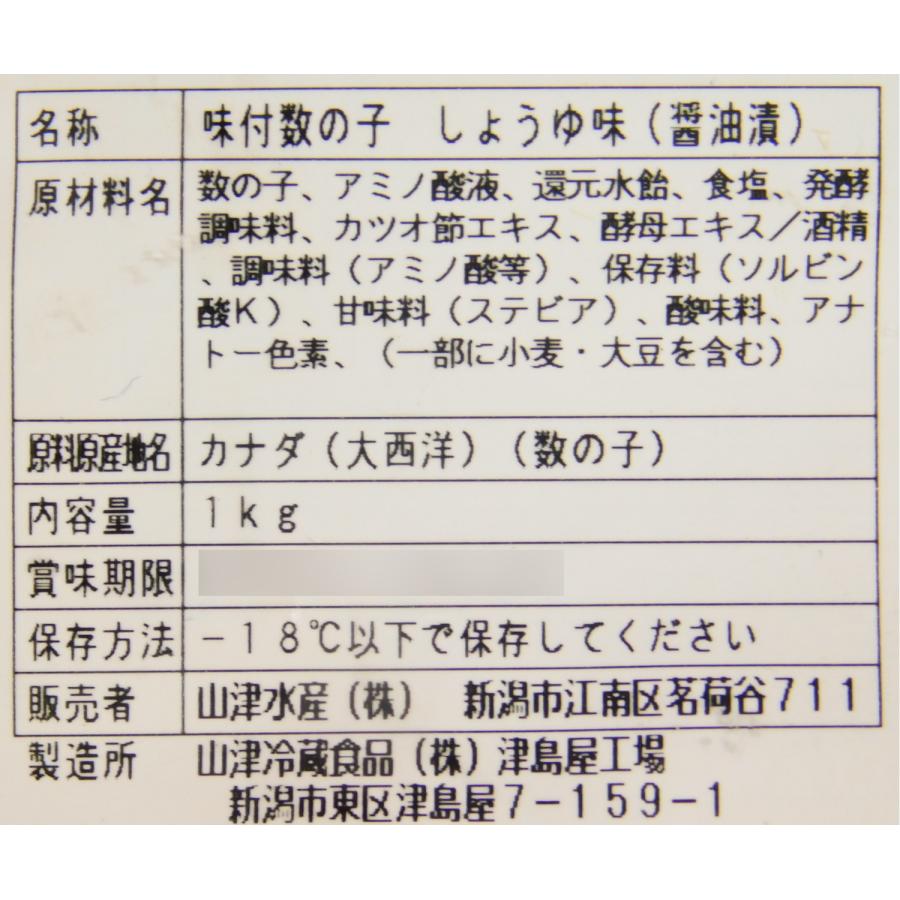 名称 味付数の子 しょうゆ味(醤油漬)
原材料名 数の子、アミノ酸液、還元水飴、食塩、発酵
調味料、カツオ節エキス、酵母エキス/酒精
、調味料(アミノ酸等)、保存料(ソルビン
酸K)、甘味料(ステビア)、酸味料、アナ
トー色素、(一部に小麦・大豆を含む)
原料原産地名 カナダ(大西洋)(数の子)
内容量 1kg
賞味期限
保存方法 -18℃以下で保存してください
販売者 山津水産(株) 新潟市江南区茗荷谷711
製造所 山津冷蔵食品(株)津島屋工場
新潟市東区津島屋7-159-1